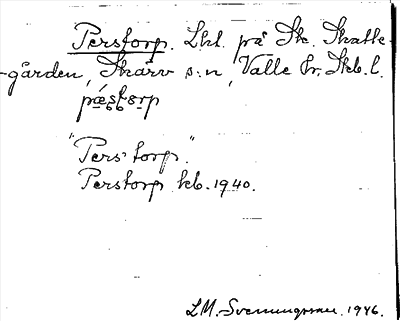 Perstorp. Lht. på Sk. Skatte-
-gården, Skärv s:n, Valle hr. Skb. l.
pæstorp
"Pers torp".
Perstorp kb. 1940.
L M. Svenungsson. 1946.